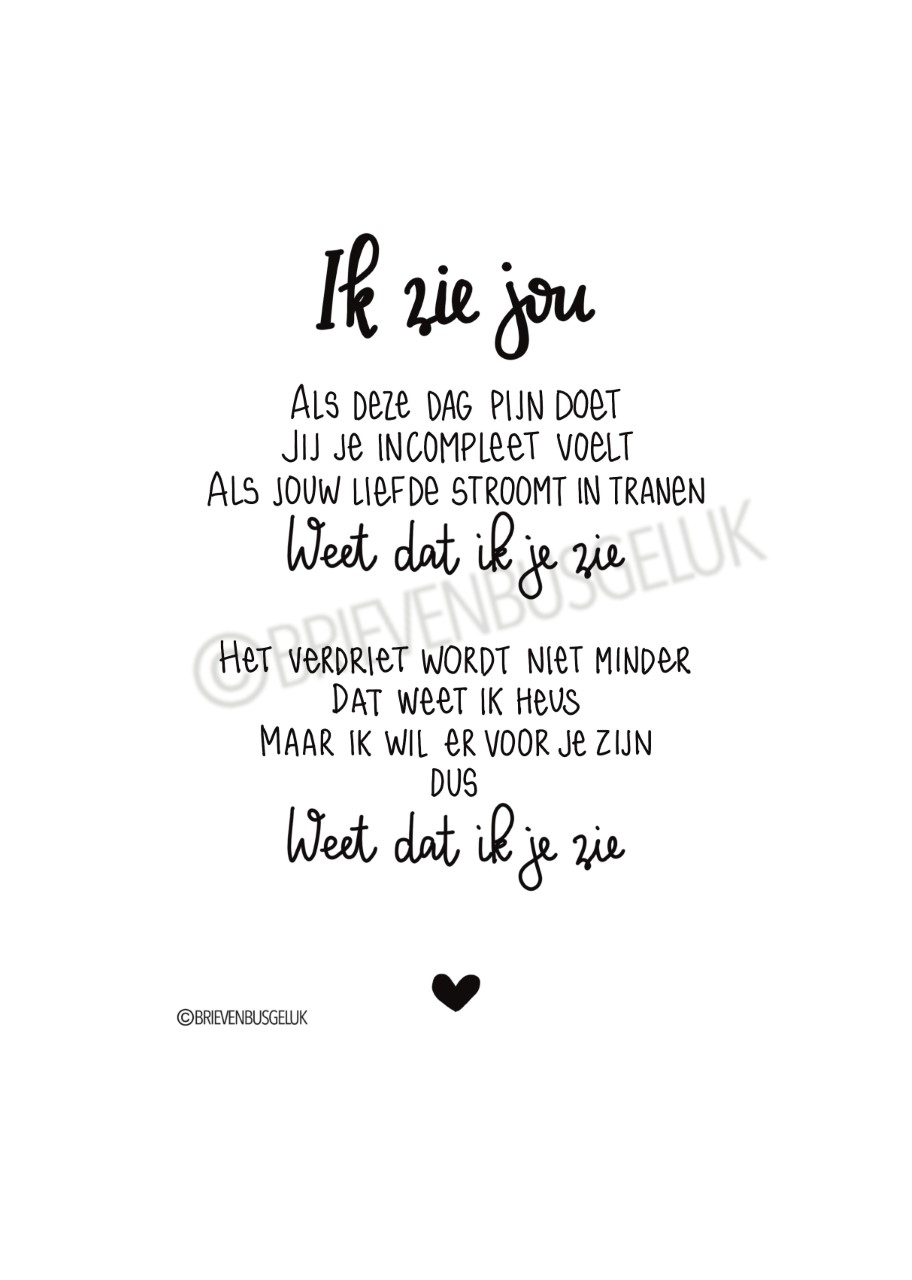 Ik zie jou
Als deze dag pijn doet
Jij je incompleet voelt
Als jouw liefde stroomt in tranen
Weet dat ik je zie
©BRIEVENBUSGELUK
Het verdriet wordt niet minder
Dat weet ik heus
Maar ik wil er voor je zijn
dus
Weet dat ik je zie
©BRIEVENBUSGELUK